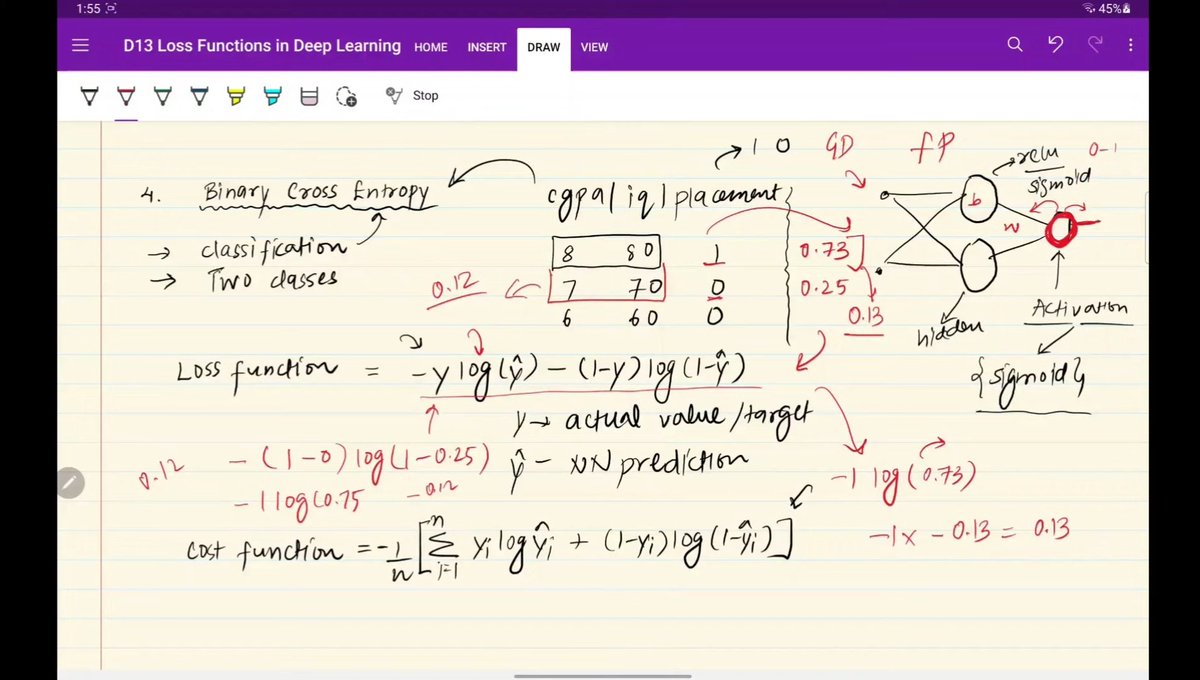 1:55
45%
D13 Loss Functions in Deep Learning HOME INSERT DRAW VIEW
Stop
→ 1 0 GD fP
relu 0-1
sigmoid
4. Binary Cross Entropy
cgpa / iq / placement
b
w
→ classification
→ Two classes
8 80 1 0.73
0.12 7 70 0 0.25
6 60 0 0.13
hidden
Activation
{sigmoid}
Loss function = -y log(ŷ) - (1-y) log(1-ŷ)
y → actual value/target
ŷ - NN prediction
0.12 - (1-0) log(1-0.25)
- 1 log(0.75 - 0.12
-1 log(0.73)
-1 x -0.13 = 0.13
cost function = -1/n [ n Σ i=1 yi log ŷi + (1-yi) log (1-ŷi) ]